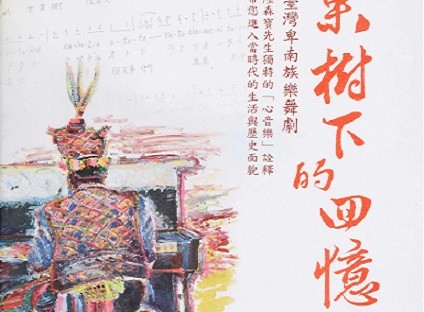 果樹下的回憶
臺灣卑南族樂舞劇
陸森寶先生獨特的「心音樂」詮釋
帶您進入當時代的生活與歷史面貌